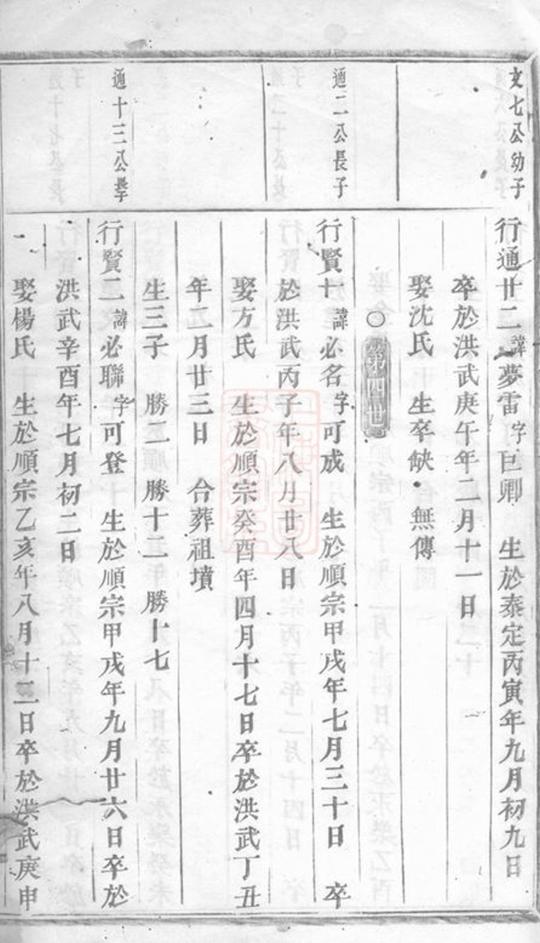 文七公幼子
行通廿二諱夢雷字巨卿　生於泰定丙寅年九月初九日
卒於洪武庚午年二月十一日
娶沈氏　生卒缺・無傳
○第四世
通二公長子
行賢十諱必名字可成　生於順宗甲戌年七月三十日　卒
於洪武丙子年八月廿八日
娶方氏　生於順宗癸酉年四月十七日卒於洪武丁丑
年二月廿三日　合葬祖墳
生三子　勝二勝十二勝十七
通十三公長子
行賢二諱必聯字可登　生於順宗甲戌年九月廿六日卒於
洪武辛酉年七月初二日
娶楊氏　生於順宗乙亥年八月十三日卒於洪武庚申